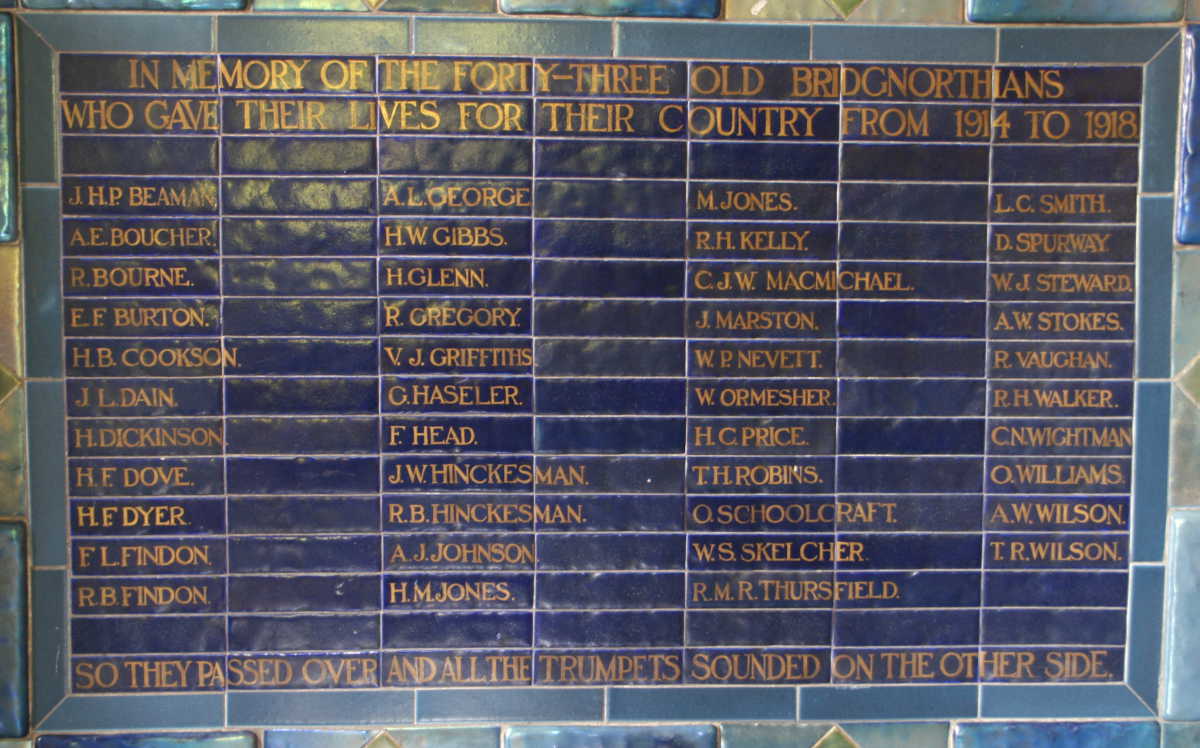 IN MEMORY OF THE FORTY-THREE OLD BRIDGNORTHIANS
WHO GAVE THEIR LIVES FOR THEIR COUNTRY FROM 1914 TO 1918.
J.H.P. BEAMAN.
A.E. BOUCHER.
R. BOURNE.
E.F. BURTON.
H.B. COOKSON.
J.L. DAIN.
H. DICKINSON.
H.F. DOVE.
H.F. DYER.
F.L. FINDON.
R.B. FINDON.
A.L. GEORGE
H.W. GIBBS.
H. GLENN.
R. GREGORY.
V.J. GRIFFITHS
G. HASELER.
F. HEAD.
J.W. HINCKESMAN.
R.B. HINCKESMAN.
A.J. JOHNSON
H.M. JONES.
M. JONES.
R.H. KELLY.
C.J.W. MACMICHAEL.
J. MARSTON.
W.P. NEVETT.
W. ORMESHER.
H.C. PRICE.
T.H. ROBINS.
O. SCHOOLCRAFT.
W.S. SKELCHER.
R.M.R. THURSFIELD.
L.C. SMITH.
D. SPURWAY.
W.J. STEWARD.
A.W. STOKES.
R. VAUGHAN.
R.H. WALKER.
C.N. WIGHTMAN
O. WILLIAMS.
A.W. WILSON.
T.R. WILSON.
SO THEY PASSED OVER AND ALL THE TRUMPETS SOUNDED ON THE OTHER SIDE.